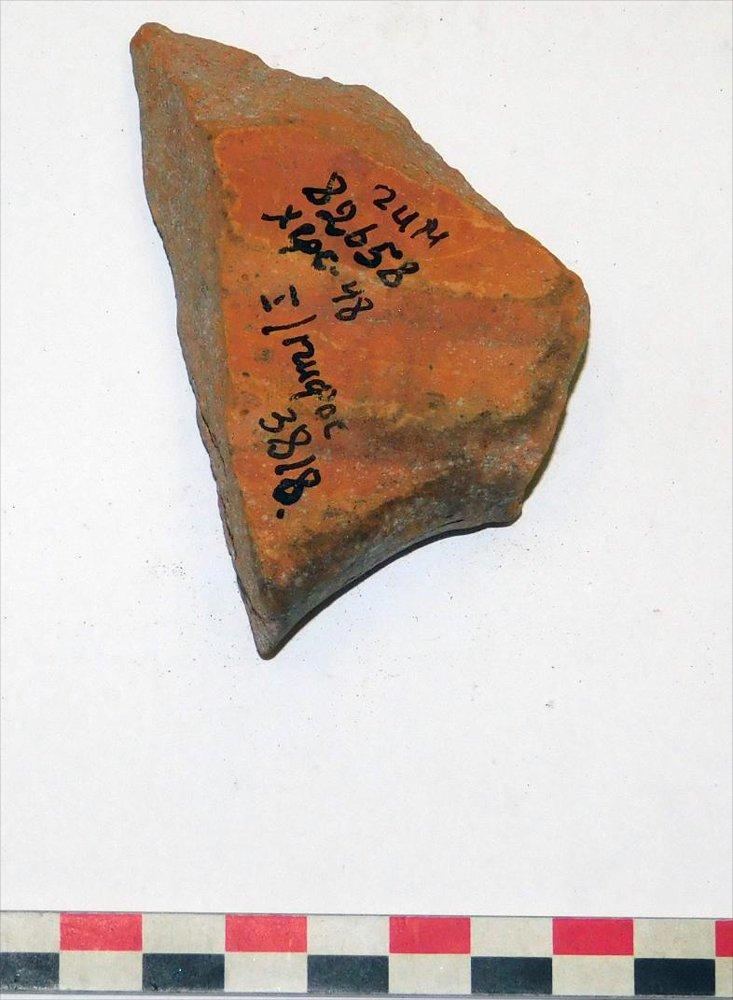 ГИМ
82658
Хер. 48
II/пифос
3818.